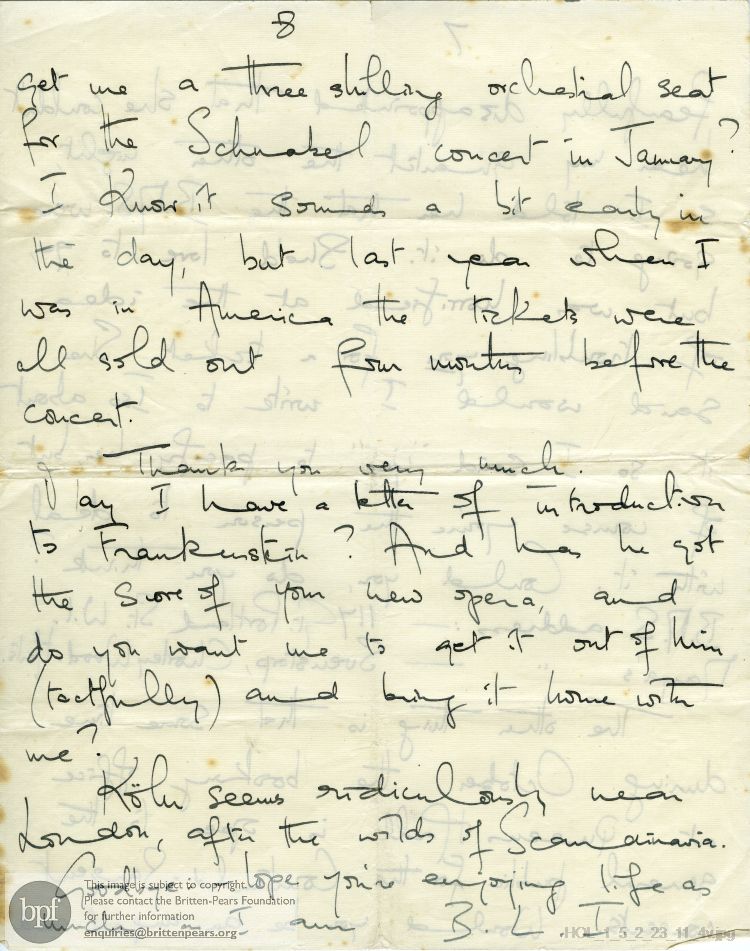 8
get me a three shilling orchestral seat
for the Schnabel concert in January?
I know it sounds a bit early in
the day, but last year when I
was in America the tickets were
all sold out four months before the
concert.
Thank you very much.
May I have a letter of introduction
to Frankenstein? And has he got
the score of your new opera, and
do you want me to get it out of him
(tactfully) and bring it home with
me?
Köln seems ridiculously near
London, after the wilds of Scandinavia.
Goodbye - hope you're enjoying life as
much as I am B. L. I.
bpf
This image is subject to copyright.
Please contact the Britten-Pears Foundation
for further information
enquiries@brittenpears.org
HOL_1_5_2_23_11_4v.jpg